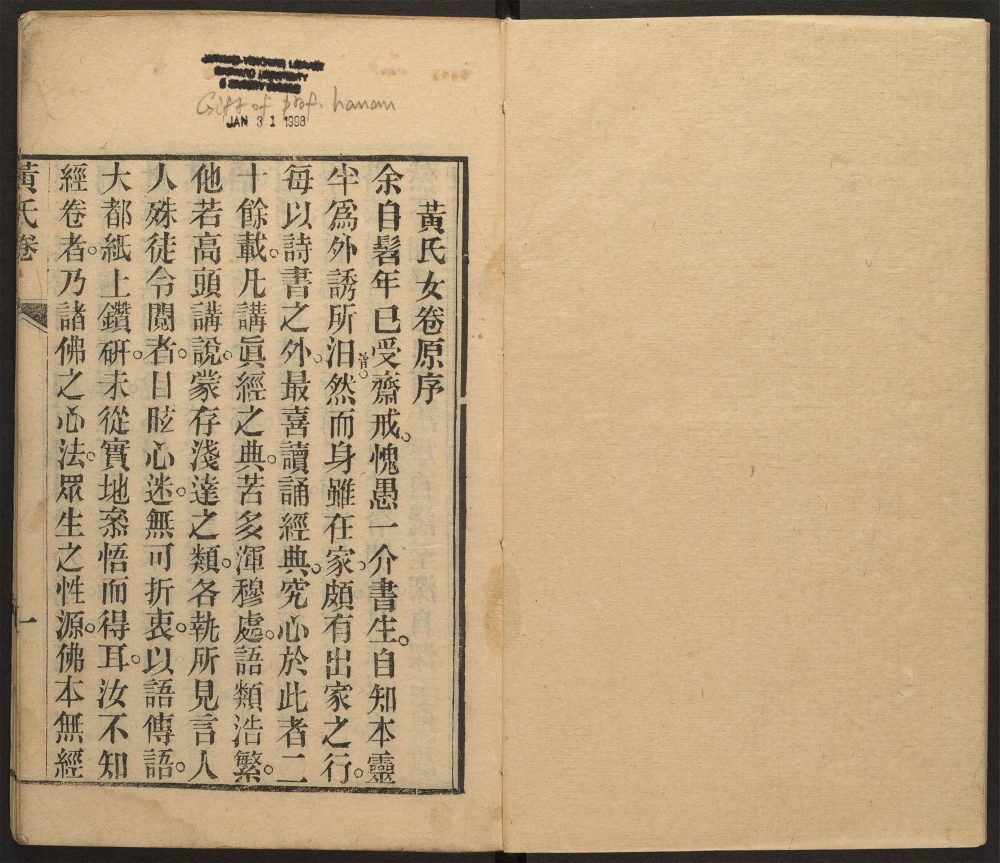 Gift of prof. hanan
JAN 31 1998
黃氏女卷原序
余自髫年已受齋戒。愧愚一介書生。自知本靈
半爲外誘所汨。然而身雖在家。頗有出家之行。
每以詩書之外。最喜讀誦經典。究心於此者二
十餘載。凡講眞經之典。苦多渾穆處。語類浩繁。
他若高頭講說。蒙存淺達之類。各執所見言人
人殊徒令閱者。目眩心迷。無可折衷。以語傳語。
大都紙上鑽研。未從實地叅悟而得耳。汝不知
經卷者。乃諸佛之心法。眾生之性源。佛本無經
黃氏卷
一